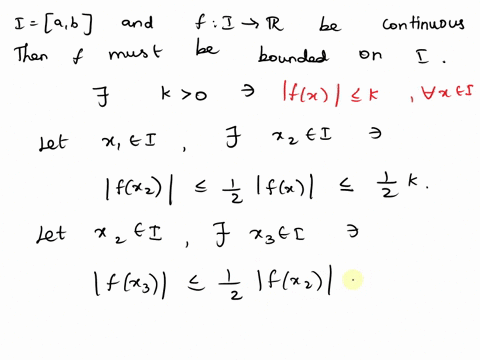 I = [a,b] and f : I → ℝ be continuous
Then f must be bounded on I.
∃ k > 0 ∋ |f(x)| ≤ k , ∀ x ∈ I
Let x₁ ∈ I , ∃ x₂ ∈ I ∋
|f(x₂)| ≤ 1/2 |f(x)| ≤ 1/2 k.
Let x₂ ∈ I , ∃ x₃ ∈ I ∋
|f(x₃)| ≤ 1/2 |f(x₂)|